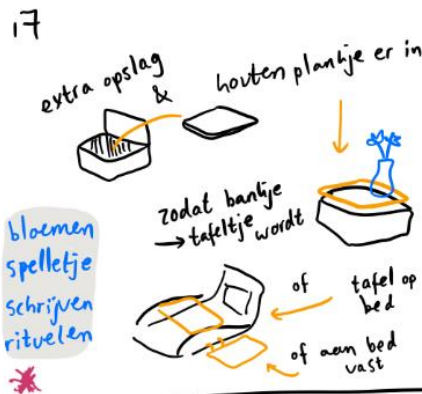 17
extra opslag
&
houten plankje er in
zodat bankje
→ tafeltje
wordt
bloemen
spelletje
schrijven
rituelen
of
tafel op
bed
of aan bed
vast